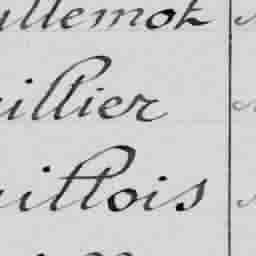 uillemot
uillier
uillois